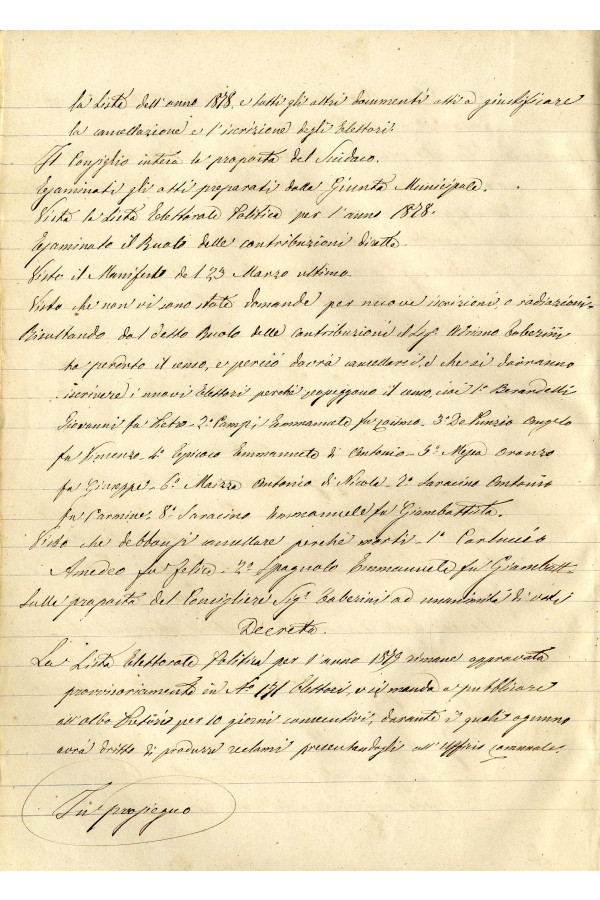 la Lista dell'anno 1878, e tutti gli altri documenti atti a giustificare
la cancellazione e l'iscrizione degli Elettori.
Il Consiglio intesa la proposta del Sindaco.
Esaminati gli atti preparati dalla Giunta Municipale.
Vista la Lista Elettorale Politica per l'anno 1878.
Esaminato il Ruolo delle contribuzioni dirette.
Visto il Manifesto del 23 Marzo ultimo.
Visto che non vi sono state domande per nuove iscrizioni, o radiazioni.
Risultando dal detto Ruolo delle contribuzioni il Sig.
ha perduto il censo, e perciò dovrà cancellarsi, e che si dovranno
iscrivere i nuovi Elettori perchè posseggono il censo, 1° Berardelli
Giovanni fu Pietro - 2° Campi Emmanuele fu - 3° De Punzio Angelo
fu Vincenzo - 4° Epicoco Emmanuele di Antonio - 5° Oronzo
fu Giuseppe - 6° Antonio di Nicola - 7° Saracino Antonio
fu Carmine, 8° Saracino Emmanuele fu Giambattista.
Visto che debbonsi cancellare perchè morti - 1°
Amedeo fu Felice - 2° Spagnolo Emmanuele fu Giambatt.
Sulla proposta del Consigliere Sig.r ad unanimità di voti
Decreta.
La Lista Elettorale Politica per l'anno 1879 rimane approvata
provvisoriamente in N° 171 Elettori, e si manda a pubblicare
all'albo Pretorio per 10 giorni consecutivi, durante i quali ognuno
avrà dritto di produrre reclami presentandogli all'Ufficio comunale.
In prosieguo